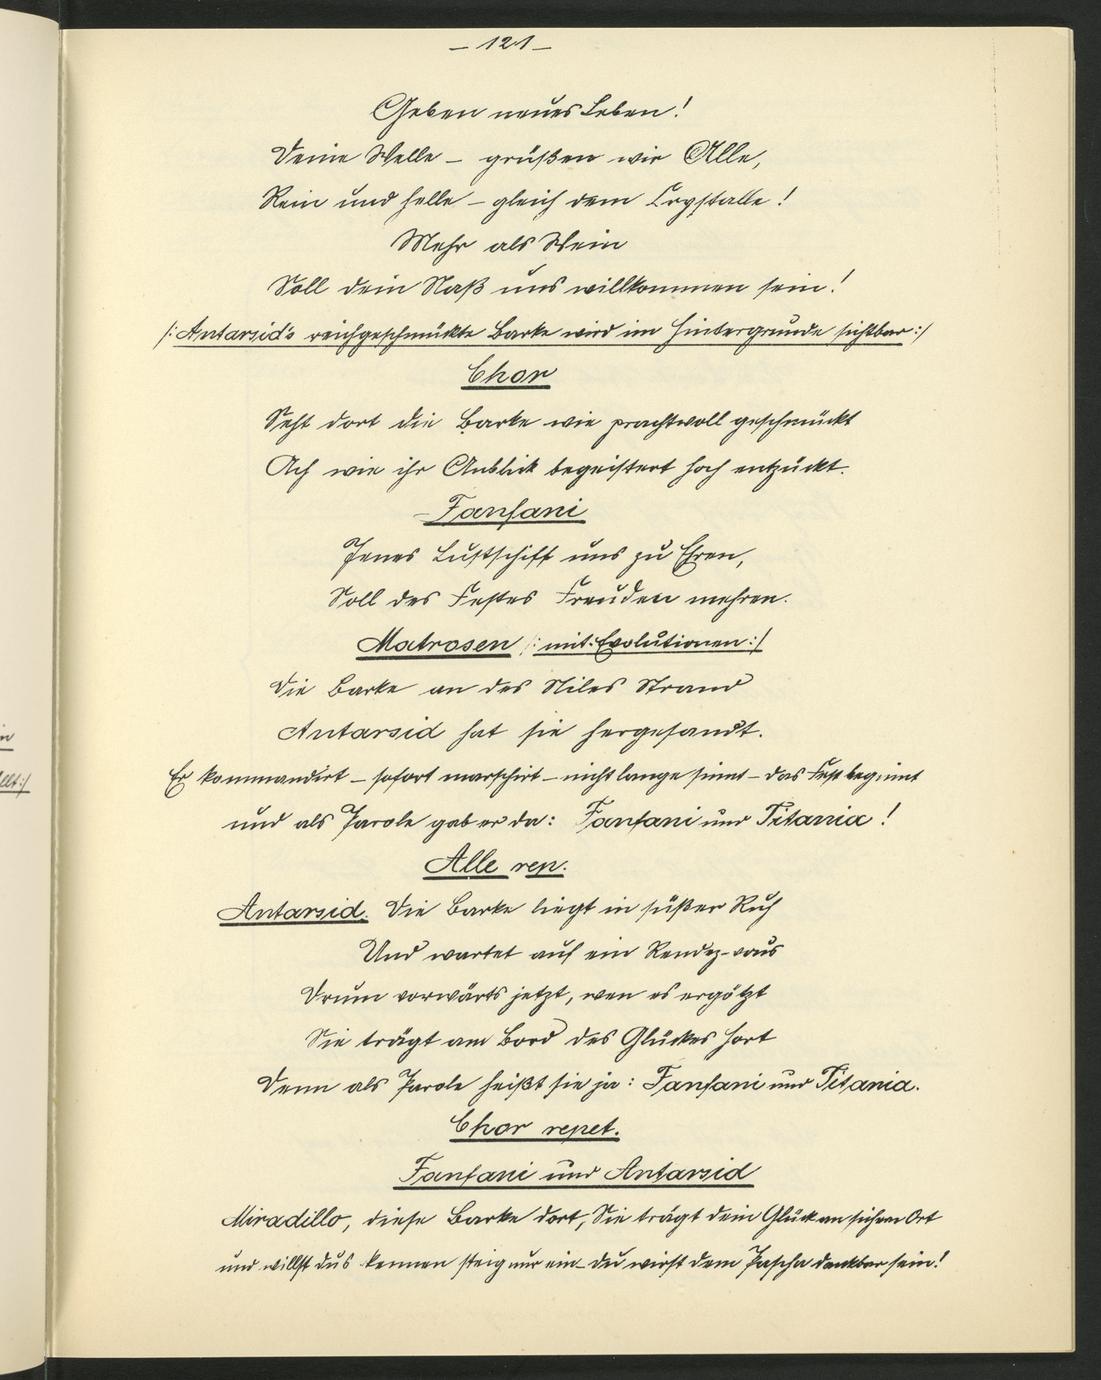 – 121 –
Geben neues Leben!
Deine Welle – grüßen wir Alle,
Rein und helle – gleich dem Crystalle!
Mehr als Wein
Soll dein Naß uns willkommen sein!
/: Antarsid's reichgeschmückte Barke wird im Hintergrunde sichtbar :/
Chor
Seht dort die Barke wie prachtvoll geschmückt
Ach wie ihr Anblick begeistert hoch entzückt.
– Fanfani
Jenes Lustschiff uns zu Ehren,
Soll des Festes Freuden mehren.
Matrosen /: mit Evolutionen :/
Die Barke an des Niles Strand
Antarsid hat sie hergesandt.
Er kommandirt – sofort marschirt – nicht lange sinnt – das Fest beginnt
und als Parole gab er da: Fanfani und Titania!
Alle rep.
Antarsid. Die Barke liegt in süßer Ruh
Und wartet auf ein Rendez-vous
Drum vorwärts jetzt, wen es ergötzt
Sie trägt am Bord des Glückes Hort
Denn als Parole heißt sie ja: Fanfani und Titania.
Chor repet.
Fanfani und Antarsid
Miradillo, diese Barke dort, Sie trägt dein Glück an sichern Ort
und willst dus kennen steig nur ein – du wirst dem Pascha dankbar sein!